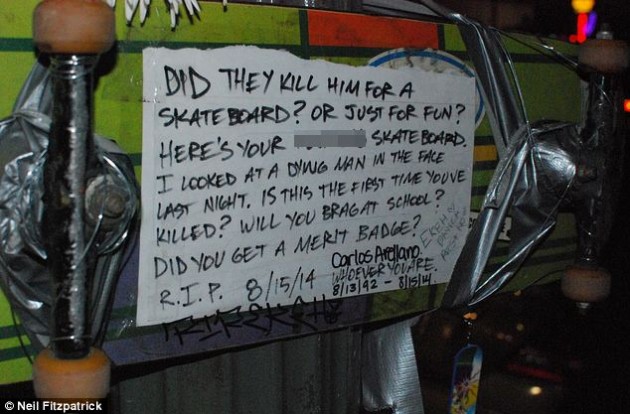 DID THEY KILL HIM FOR A
SKATEBOARD? OR JUST FOR FUN?
HERE'S YOUR SKATEBOARD.
I LOOKED AT A DYING MAN IN THE FACE
LAST NIGHT. IS THIS THE FIRST TIME YOU'VE
KILLED? WILL YOU BRAG AT SCHOOL?
DID YOU GET A MERIT BADGE?
Carlos Arellano
R.I.P. 8/15/14 WHOEVER YOU ARE.
8/13/92 - 8/15/14
© Neil Fitzpatrick